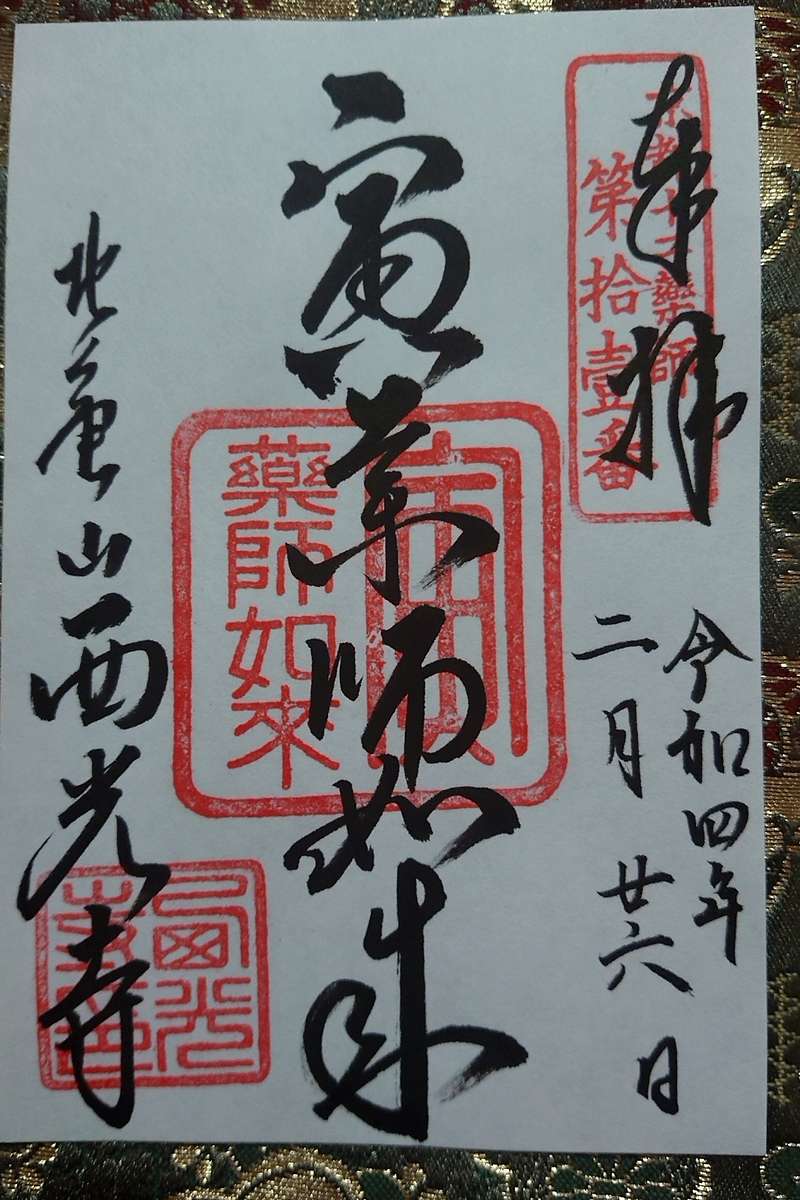 奉拝
京都十二薬師
第拾壹番
令和四年
二月廿六日
寅薬師如来
寅
藥師如來
北亀山西光寺
西光